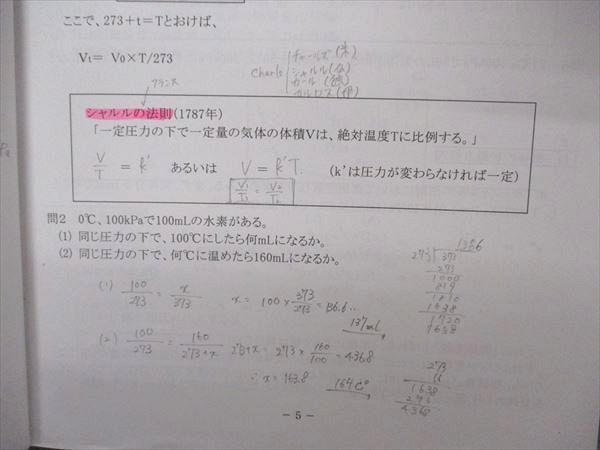 ここで、273+t=Tとおけば、
Vt= V0×T/273
Charls
チャールズ(米)
シャルル(仏)
カール(独)
カルロス(伊)
フランス
シャルルの法則(1787年)
「一定圧力の下で一定量の気体の体積Vは、絶対温度Tに比例する。」
V/T = k' あるいは V=k'T. (k'は圧力が変わらなければ一定)
V1/T1 = V2/T2
問2 0℃、100kPaで100mLの水素がある。
(1) 同じ圧力の下で、100℃にしたら何mLになるか。
(2) 同じ圧力の下で、何℃に温めたら160mLになるか。
(1) 100/273 = x/373 x=100×373/273=136.6…
137mL
(2) 100/273 = 160/273+x 273+x=273×160/100=436.8
∴x=163.8 164℃
1366
273 373
273
1000
819
1810
1638
1720
1638
273
16
1638
273
4368
- 5 -